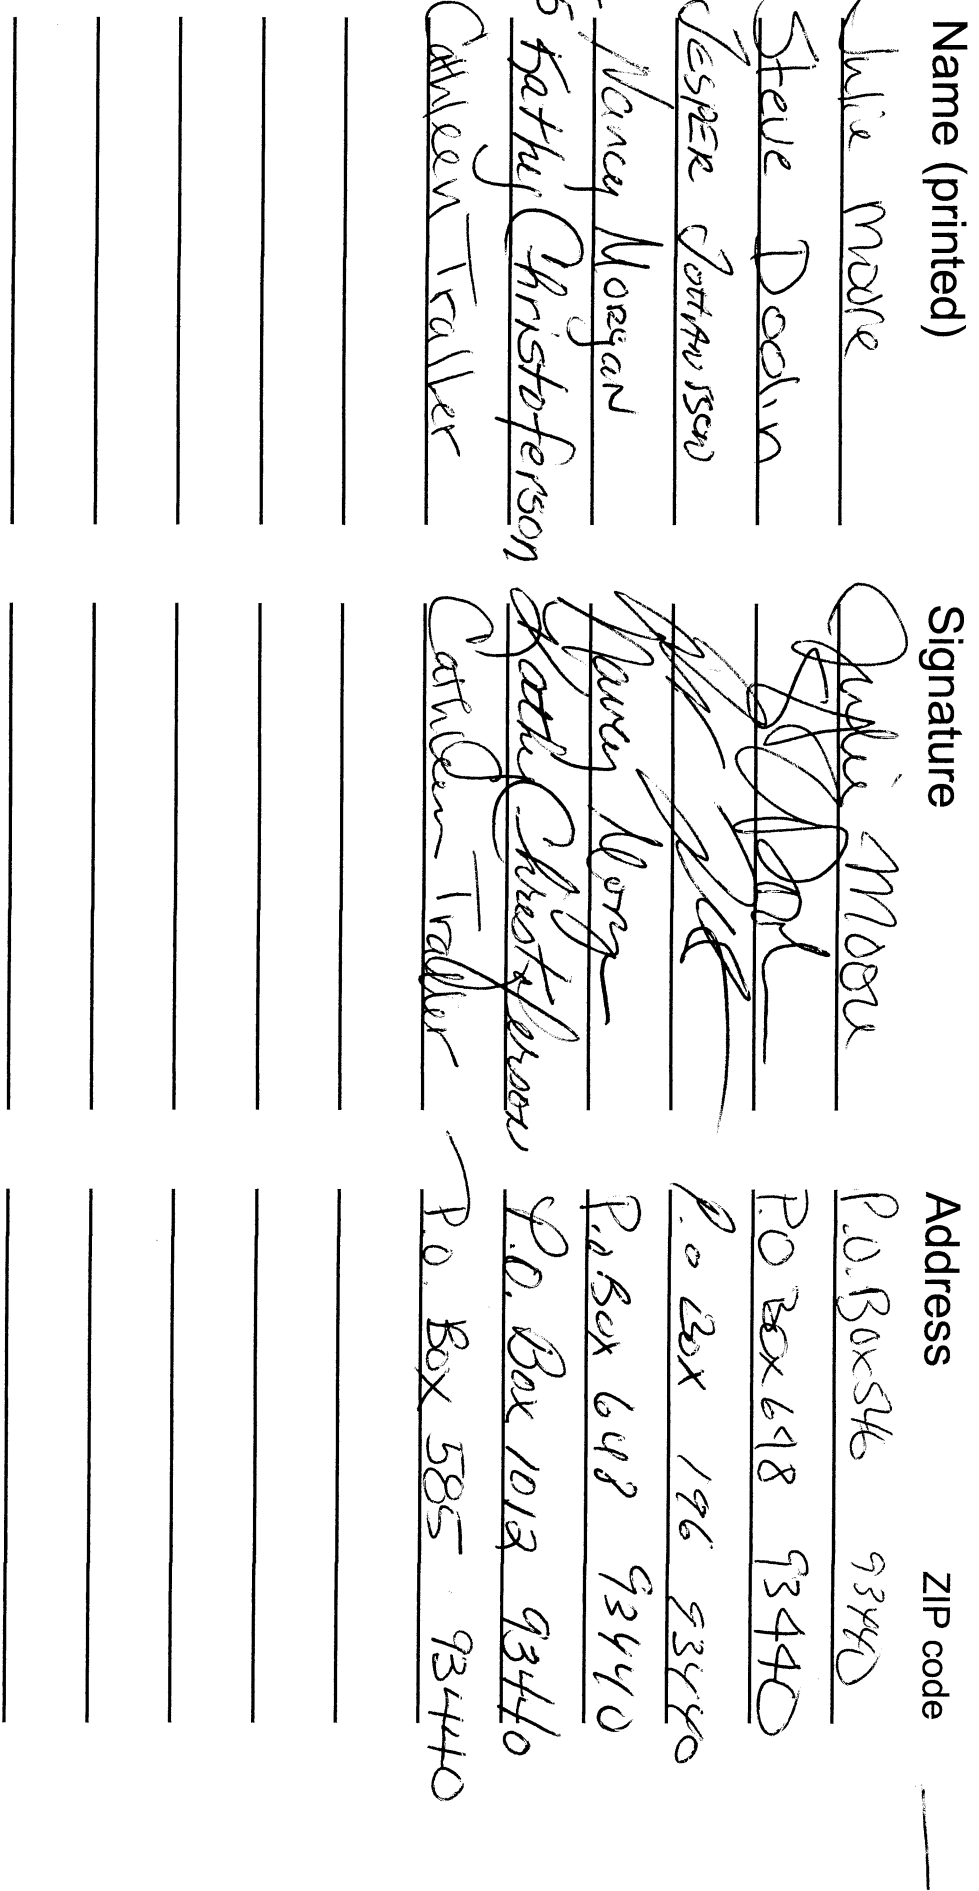 Name (printed) Signature Address ZIP code
Julie Moore Julie Moore P.O. Box 546 93440
Steve Doolin P.O Box 698 93440
JESPER JOHANSSON P.O Box 196 93440
Nancy Morgan Nancy Morgan P.O Box 648 93440
5 Kathy Christoferson Kathy Christoferson P.O. Box 1012 93440
Cathleen Traller Cathleen Traller P.O. Box 585 93440